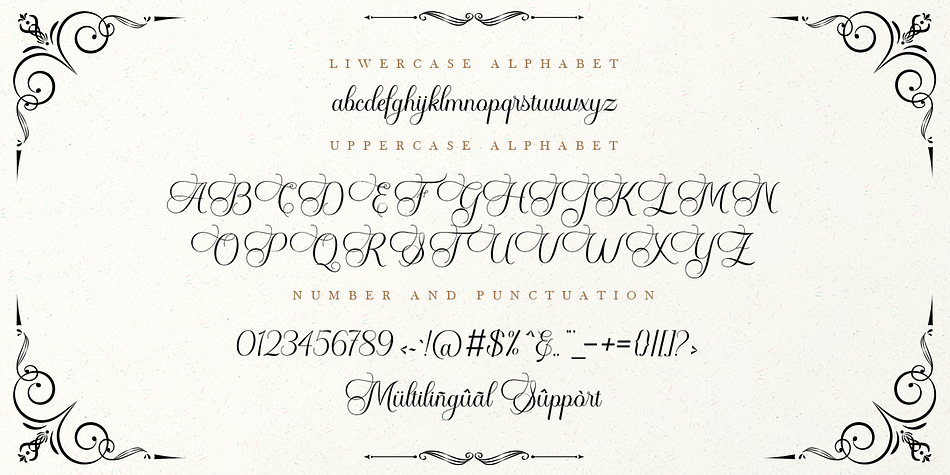 LIWERCASE ALPHABET
abcdefghijklmnopqrstuvwxyz
UPPERCASE ALPHABET
ABCDEFGHIJKLMN
OPQRSTUVWXYZ
NUMBER AND PUNCTUATION
0123456789 <~`!@#$%^&.."_-+={}|[]?>
Mültilingûãl Sûppòrt